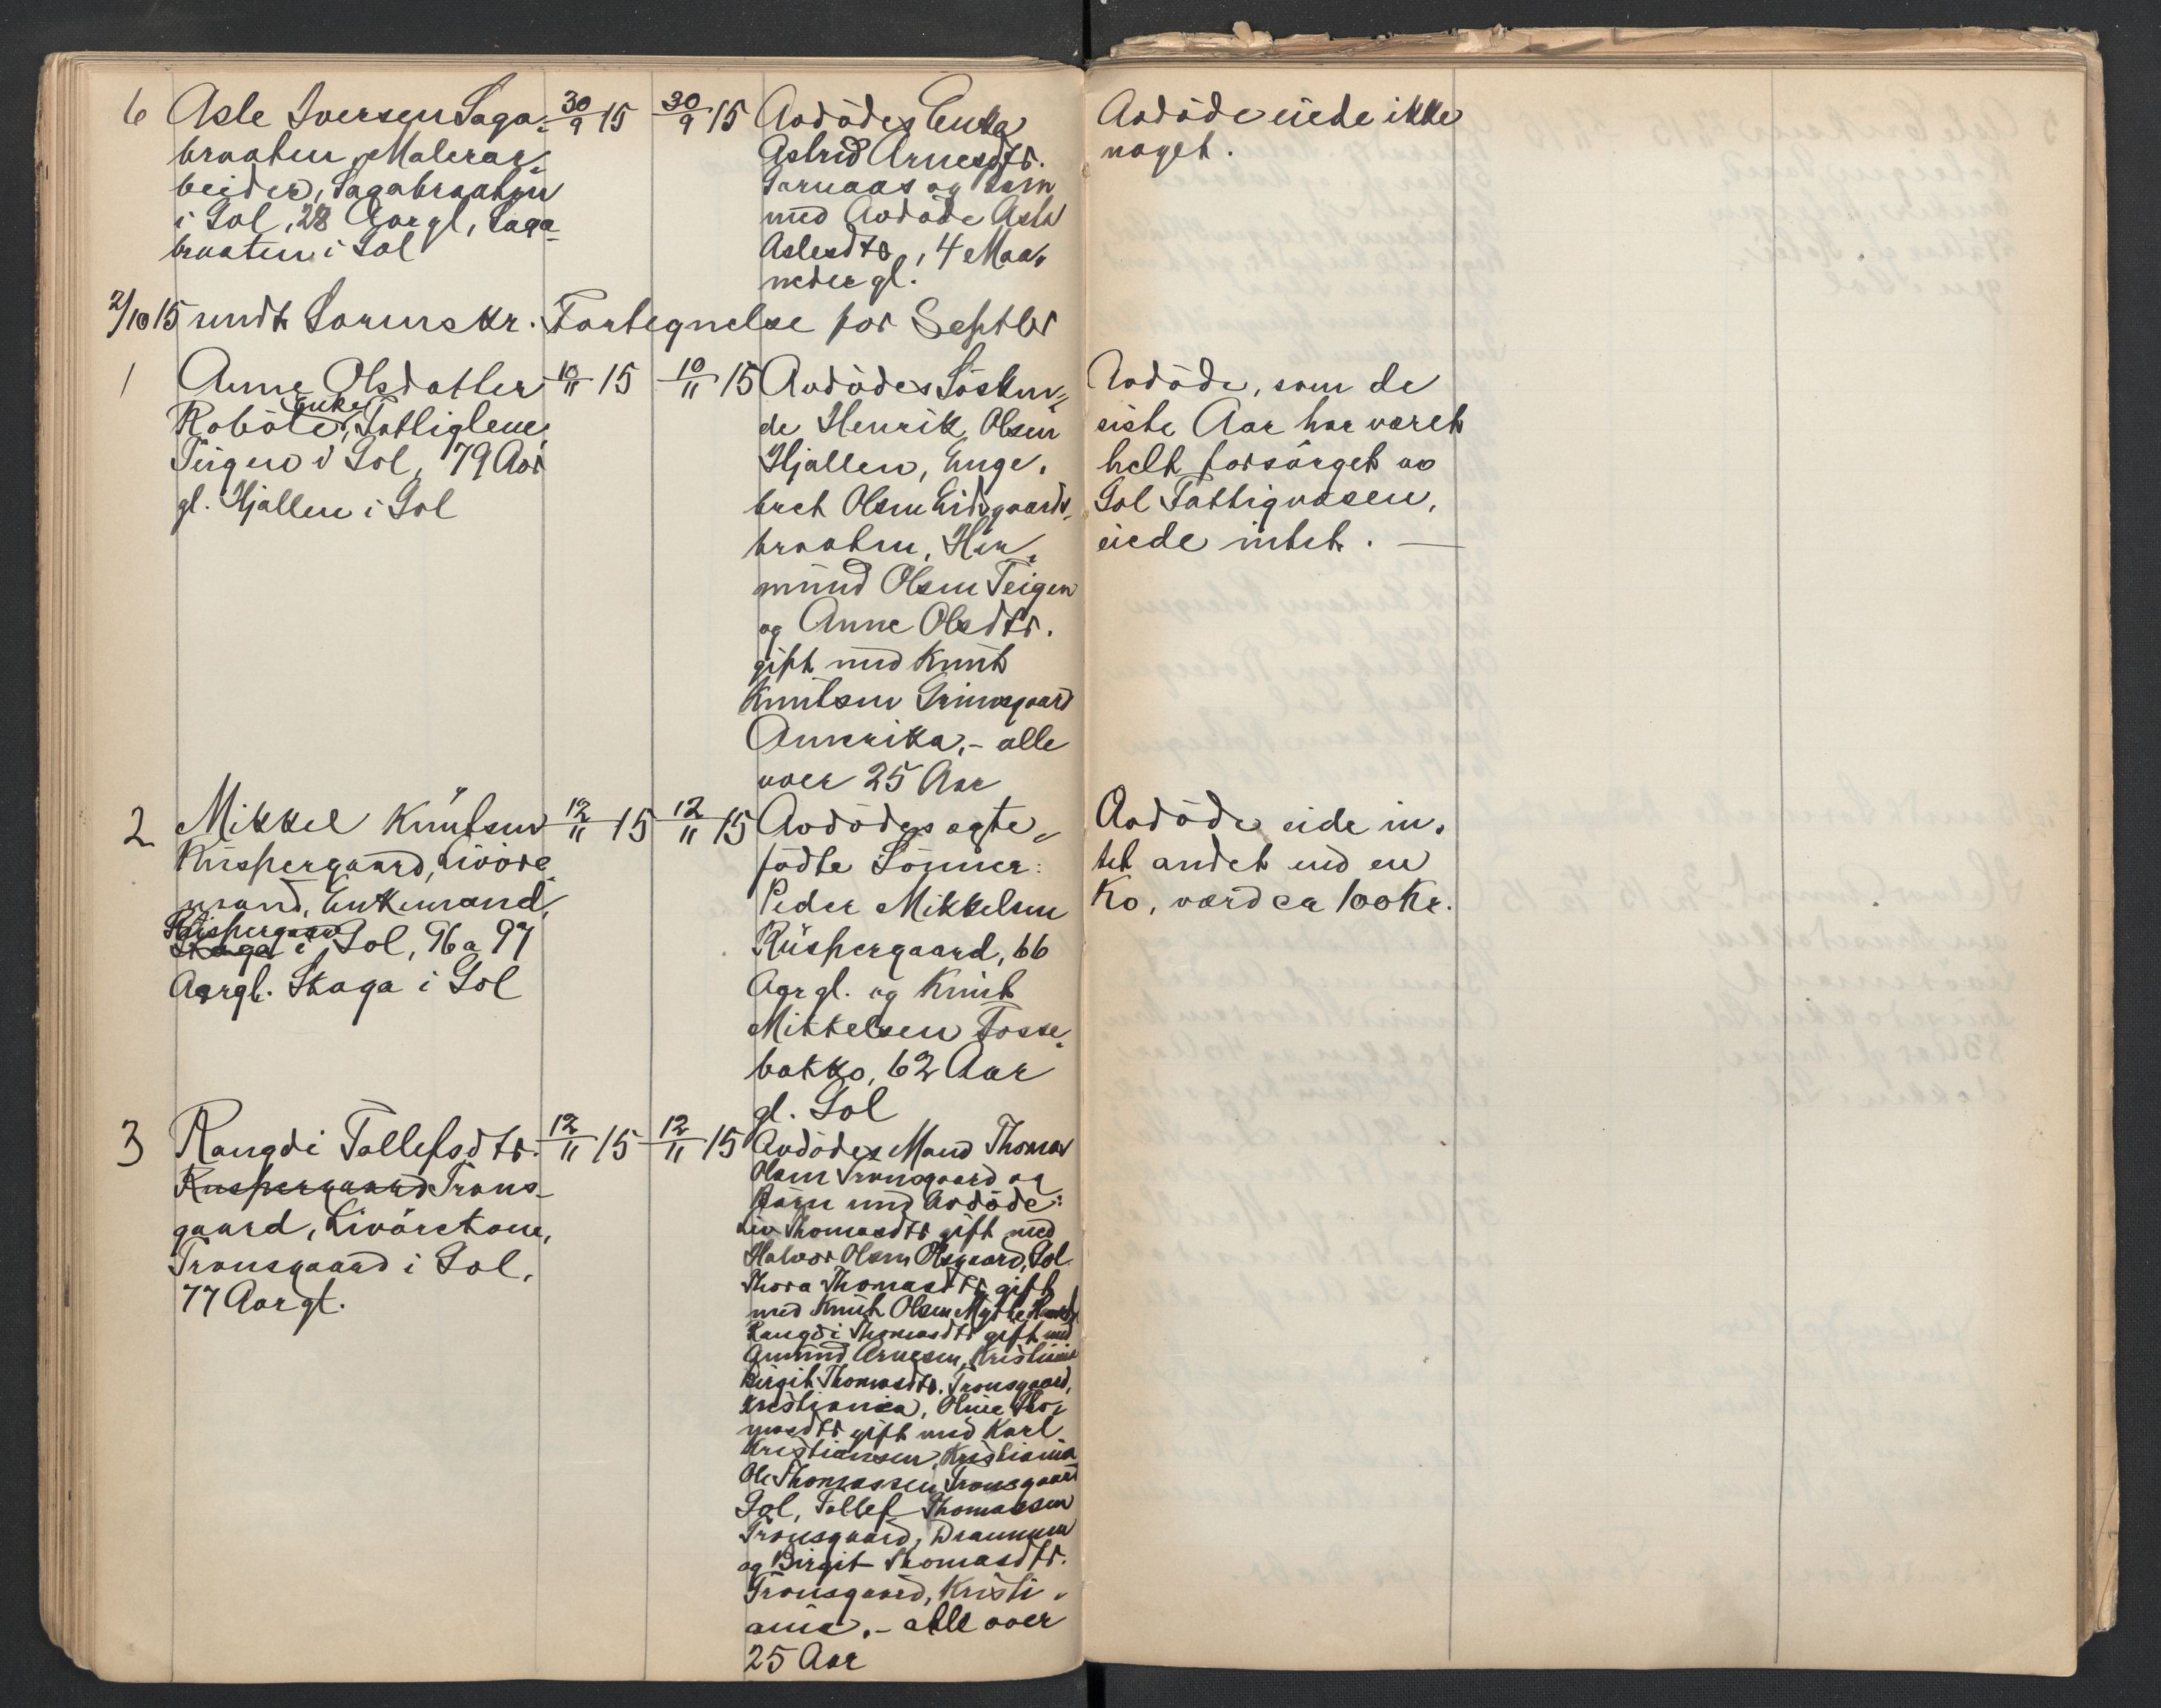 6 Asle Iversen Saga- 30/9 15 30/9 15
braaten, Malerar-
beider, Sagabraaten
i Gol, 28 Aar gl, Saga-
braaten i Gol
Avdödes Enke
Astrid Arnesdtr.
og Barn
med Avdöde Asle
Aslesdtr, 4 Maa-
neder gl.
Avdöde eiede ikke
noget.
2/10 15 sendt Sorenskr. Fortegnelse for Septbr
1 Anne Olsdatter 10/11 15 10/11 15
Enke
Roböle, Fattiglem,
Teigen i Gol, 79 Aar
gl. Hjallen i Gol
Avdödes Sösken-
de Henrik Olsen
Hjallen, Enge-
bret Olsen Eidsgaards-
braaten, Her-
mund Olsen Teigen
og Anne Olsdtr.
gift med Knut
Knutsen Grimsgaard
Amerika, - alle
over 25 Aar
Avdöde, som de
siste Aar har været
helt forsörget av
Gol Fattigvæsen,
eiede intet. —
2 Mikkel Knutsen 12/11 15 12/11 15
Ruspergaard, Livöre-
mand, Enkemand,
Ruspergaard
Skaga i Gol, 96 a 97
Aar gl. Skaga i Gol
Avdödes egte-
födte Sönner:
Peder Mikkelsen
Ruspergaard, 66
Aar gl. og Knut
Mikkelsen Fosse-
bakko, 62 Aar
gl. Gol
Avdöde eide in-
tet andet end en
Ko, værd ca 100 Kr.
3 Rangdi Tollefsdtr. 12/11 15 12/11 15
Ruspergaard Trons-
gaard, Livörekone,
Tronsgaard i Gol,
77 Aar gl.
Avdödes Mand Thomas
Olsen Tronsgaard og
Barn med Avdöde:
Liv Thomasdtr gift med
Halvor Olsen Olsgaard, Gol
Thora Thomasdtr, gift
med Knut Olsen Mythe
Rangdi Thomasdtr gift med
Amund Arnesen, Kristiania
Birgit Thomasdtr. Tronsgaard,
Kristiania, Oline Tho-
masdtr gift med Karl
Kristiansen, Kristiania
Ole Thomassen Tronsgaard
Gol, Tollef Thomassen
Tronsgaard, Drammen
og Birgit Thomasdtr.
Tronsgaard, Kristi-
ania. - alle over
25 Aar